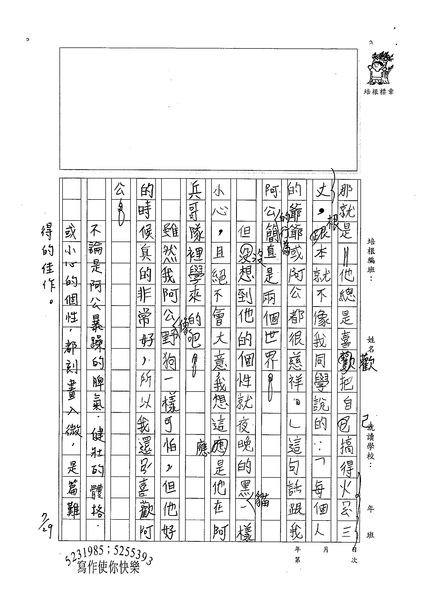 培根標章
培根編班：
姓名：
就讀學校：
年 班
年 月 日
第 次
那就是——他總是喜歡把自己搞得火冒三
歡
己
丈，根本就不像我同學說的：「每個人
根
的爺爺或阿公都很慈祥。」這句話跟我
阿公的行為簡直是兩個世界。
但沒想到他的個性就夜晚的黑貓一樣
沒
小心，且絕不會大意，我想這應是他在阿
應
兵哥隊裡學來的吧！
雖然我阿公像野狗一樣可怕，但他好
的時候真的非常好，所以我還是喜歡阿
公。
不論是阿公暴躁的脾氣、健壯的體格，
或小心的個性，都刻畫入微，是篇難
得的佳作。
7/29
5231985；5255393
寫作使你快樂